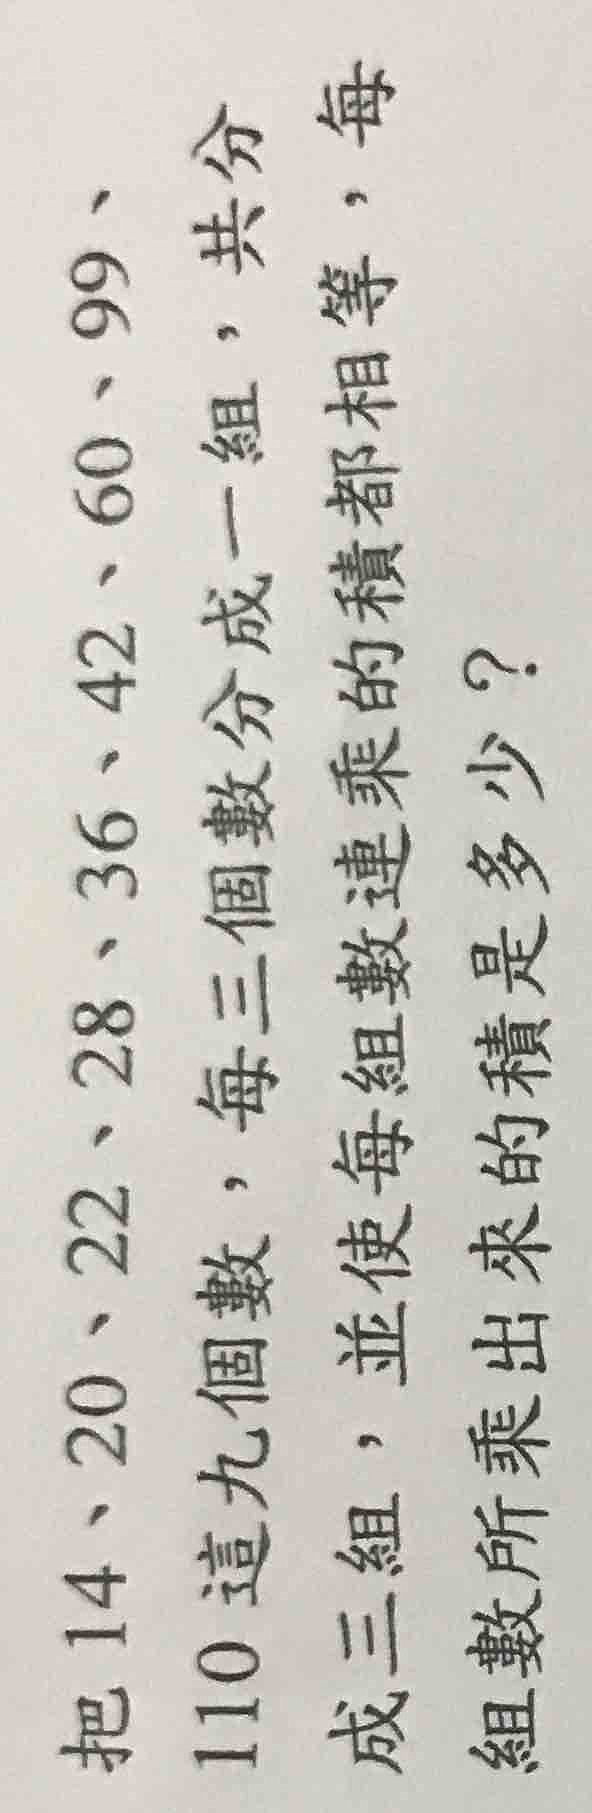 把 14、20、22、28、36、42、60、99、
110 這九個數，每三個數分成一組，共分
成三組，並使每組數連乘的積都相等，每
組數所乘出來的積是多少？